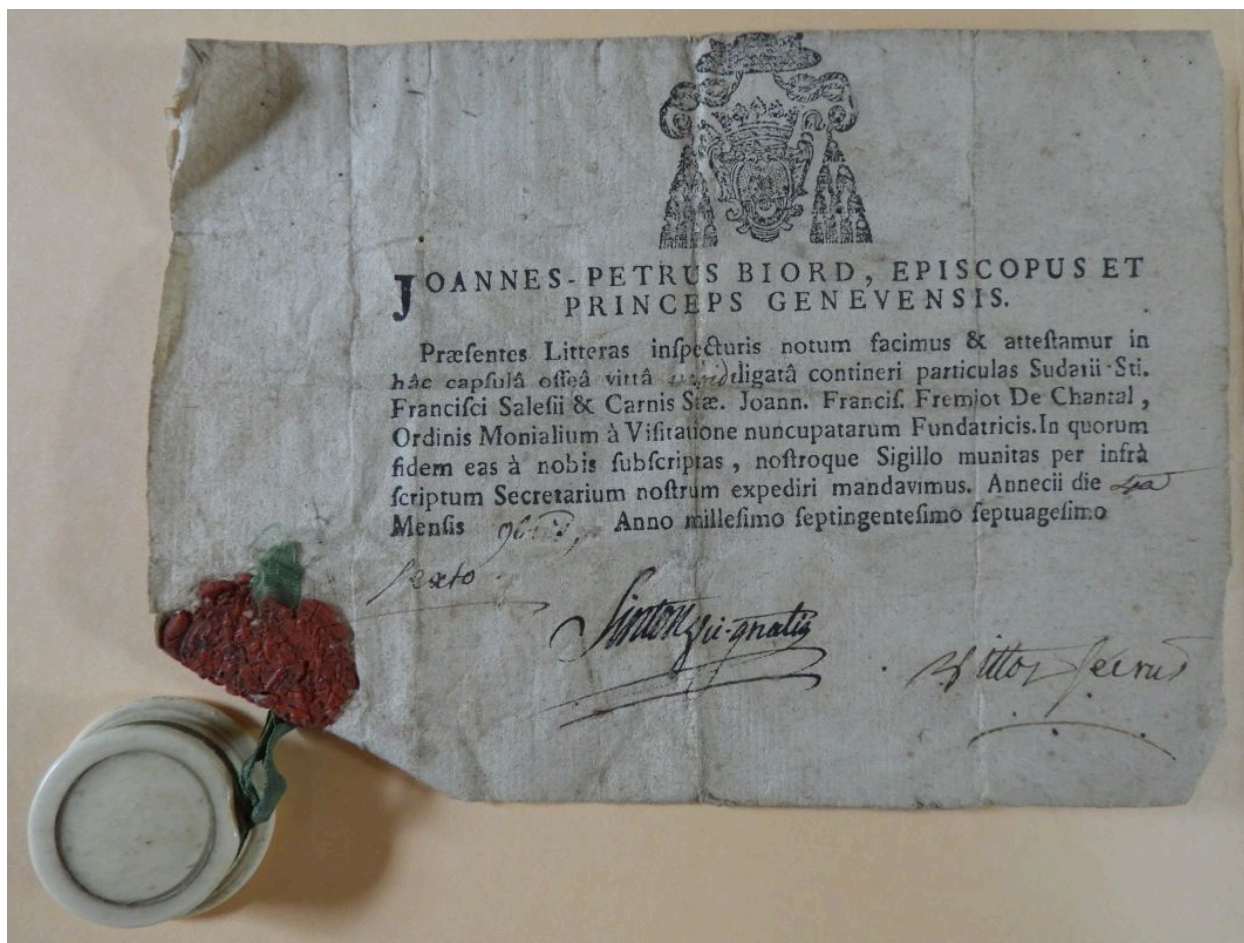 JOANNES-PETRUS BIORD, EPISCOPUS ET
PRINCEPS GENEVENSIS.
Præſentes Litteras inſpecturis notum facimus & atteſtamur in
hâc capſulâ oſſeâ vittâ ligatâ contineri particulas Sudarii Sti.
Franciſci Saleſii & Carnis Stæ. Joann. Franciſ. Fremiot De Chantal,
Ordinis Monialium à Viſitatione nuncupatarum Fundatricis. In quorum
fidem eas à nobis ſubſcriptas, noſtroque Sigillo munitas per infrà
ſcriptum Secretarium noſtrum expediri mandavimus. Annecii die
Menſis Anno milleſimo ſeptingenteſimo ſeptuageſimo
sexto